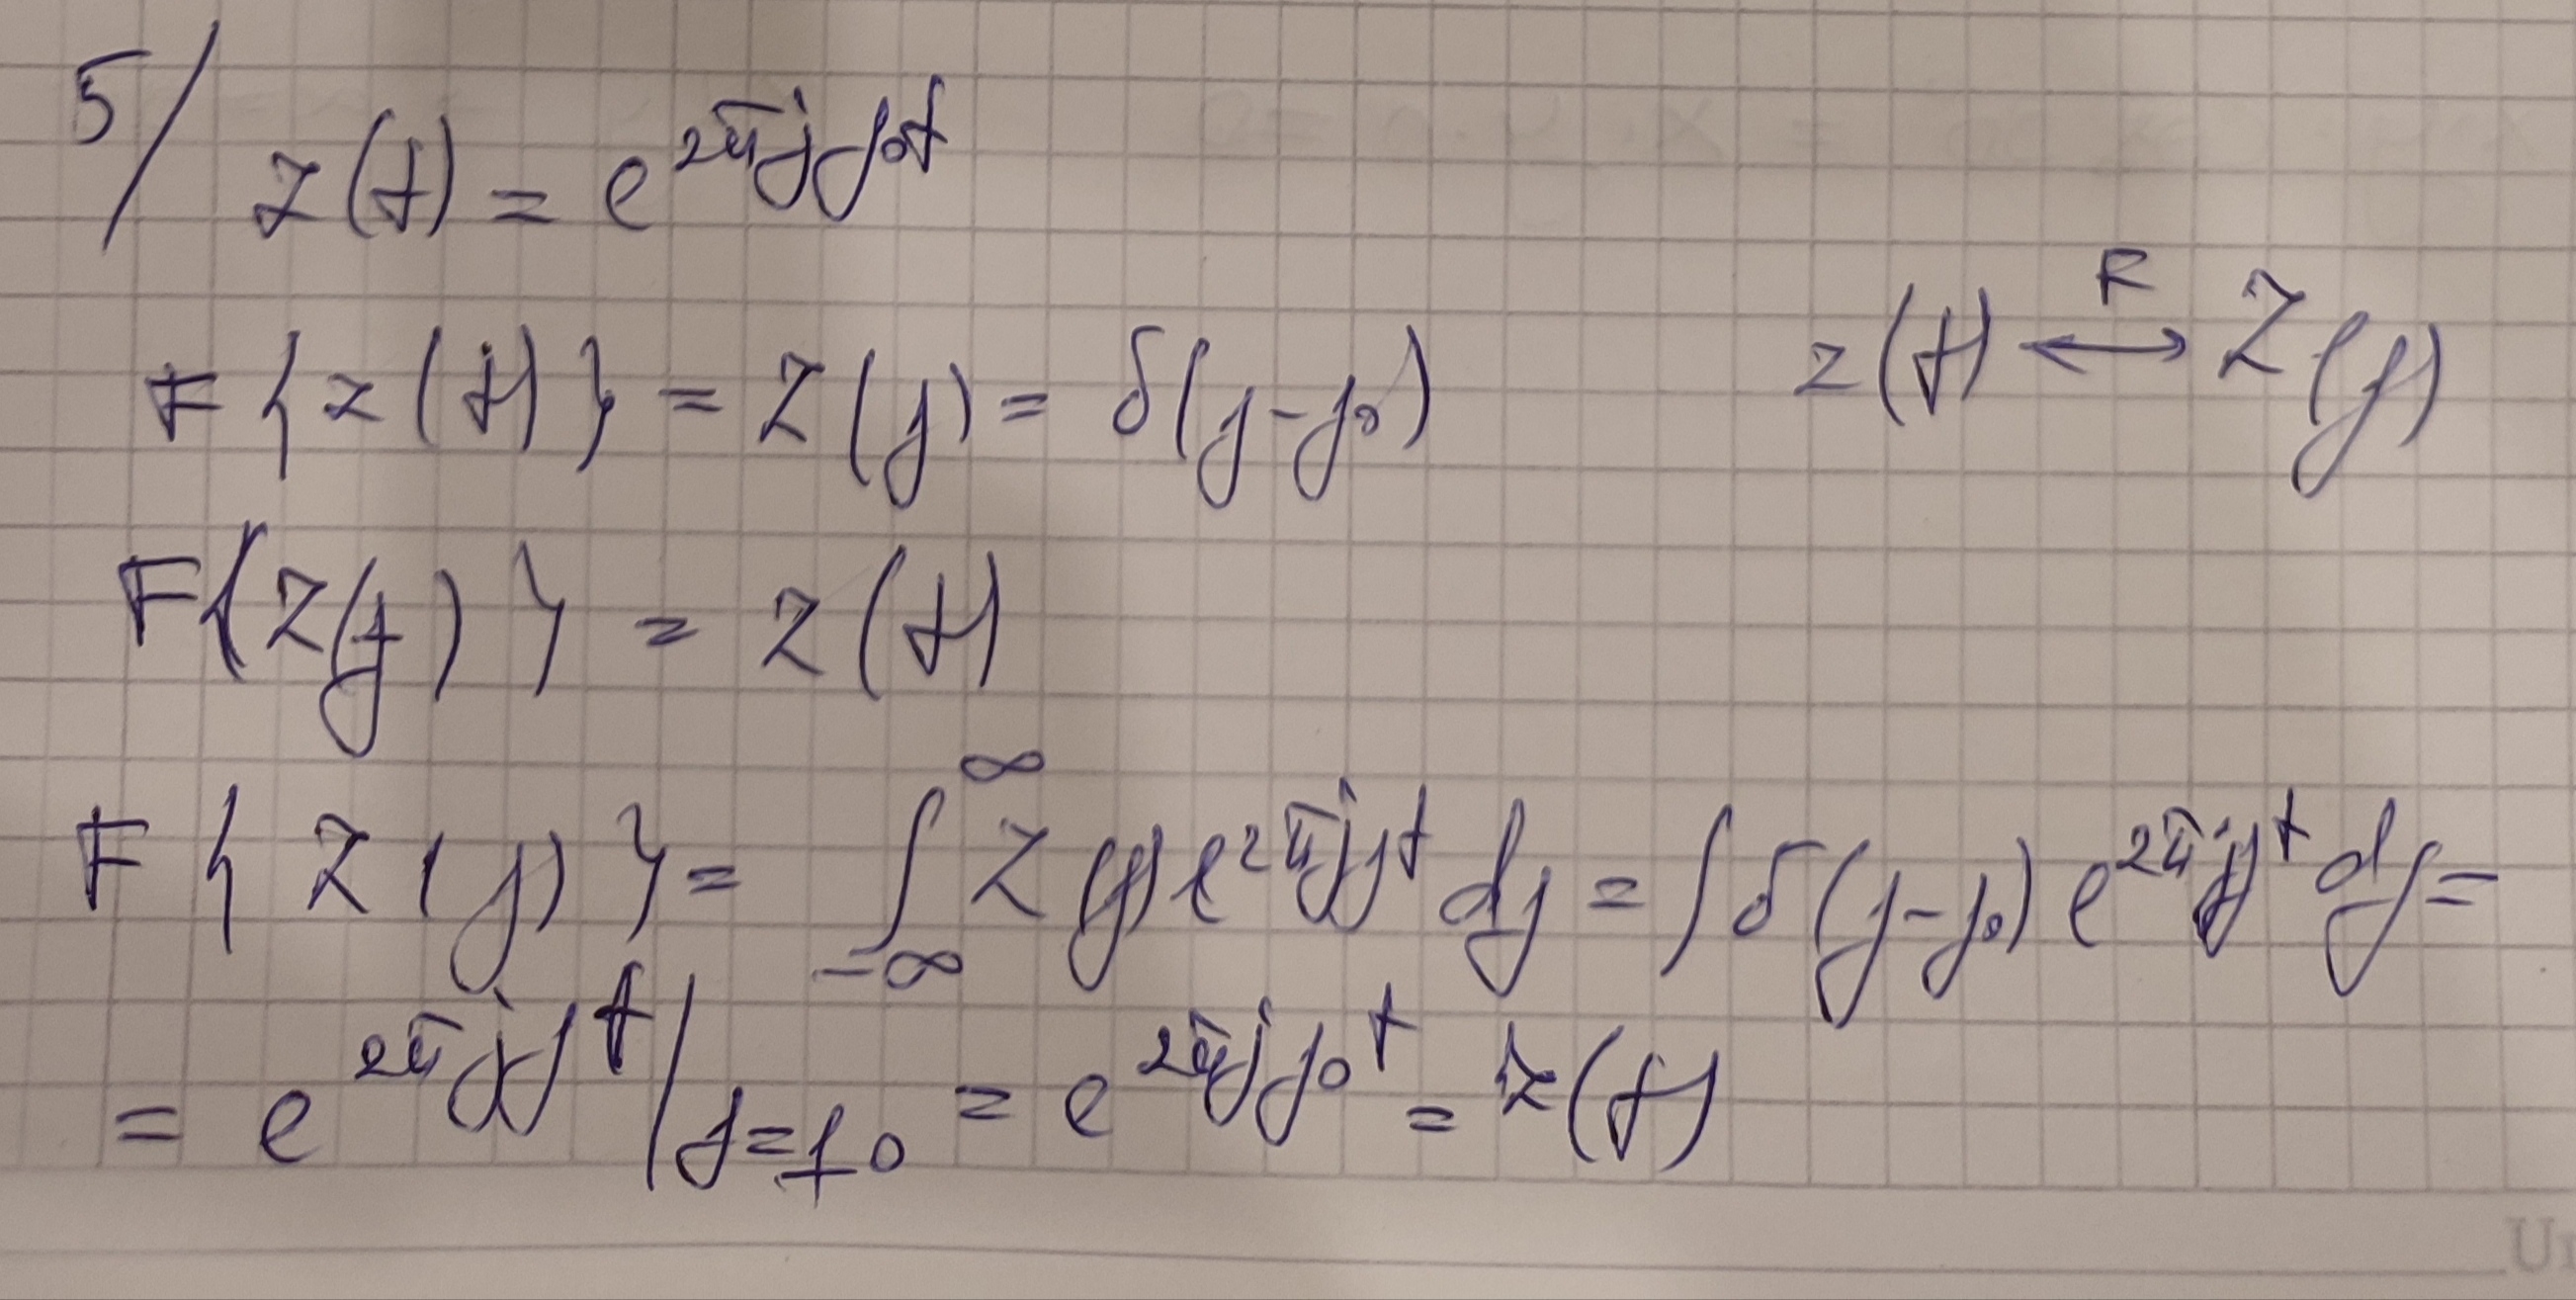 5/
z(t) = e^{2πjf₀t}
F{z(t)} = Z(f) = δ(f-f₀)
z(t) ⟷^F Z(f)
F{Z(f)} = z(t)
F{Z(f)} = ∫_{-∞}^{∞} Z(f) e^{2πjft} df = ∫ δ(f-f₀) e^{2πjft} df =
= e^{2πjft} |_{f=f₀} = e^{2πjf₀t} = z(t)